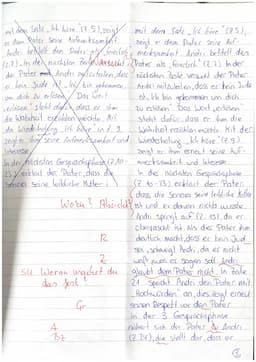 mit dem Satz "Ich höre" (Z.5),
zeigt er dem Pater seine Aufmerksamkeit.
Andri betitelt den Pater als "feierlich"
(Z.7). In der nächsten Zeile versucht
der Pater Andri mitzuteilen, dass
er kein Jude ist. "Ich bin gekommen,
um dich zu erlösen". Das Wort
"erlösen" steht dafür, dass er ihm
die Wahrheit erzählen möchte. Mit
der Wiederholung "Ich höre" in Z. 9
zeigt er ihm seine Aufmerksamkeit und
Interesse.
In der nächsten Gesprächsphase (Z.10-
13) erklärt der Pater, dass die
Senora seine leibliche Mutter i
Wozu? Absicht?
R
Z
SU Woran machst du
das fest?
Gr
A
Bz
mit dem Satz "Ich höre" (Z.5),
zeigt er dem Pater seine Auf-
merksamkeit. Andri betitelt den
Pater als "feierlich" (Z.7). In der
nächsten Zeile versucht der Pater
Andri mitzuteilen, dass er kein Jude
ist "Ich bin gekommen um dich
zu erlösen". Das Wort "erlösen"
steht dafür, dass er ihm die
Wahrheit erzählen möchte. Mit der
Wiederholung "Ich höre" (Z.9),
zeigt er ihm erneut seine Auf-
merksamkeit und Interesse.
In der nächsten Gesprächsphase
(Z.10-13) erklärt der Pater,
dass die Senora seine leibliche Mutter
ist und er davon nichts wusste.
Andri springt auf (Z.13), da er
überrascht ist. Als der Pater ihm
deutlich macht, dass er kein Jud
sei, schweigt Andri, da er nicht
weiß was er sagen soll. Andri
glaubt dem Pater nicht. In Zeile
21 spricht Andri den Pater mit
"Hochwürden" an, dies zeigt erneut
seinen Respekt vor dem Pater.
In der 3 Gesprächsphase
nähert sich der Pater Andri
die stellt dar, dass er